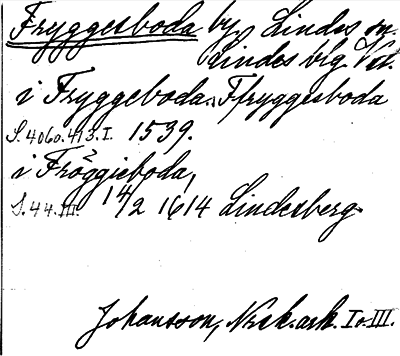 Fryggesboda by Lindes sn.
Lindes blg. Vstm.
i Fryggeboda. Ffryggesboda
S. 406 o. 413. I. 1539.
i Fröggieboda,
S. 44. III. 14/2 1614 Lindesberg.
Johansson, Norsk. ark. I o. III.